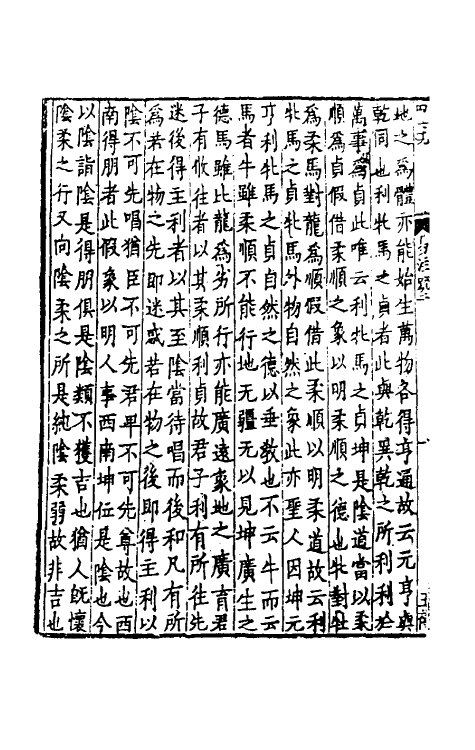 地之爲體亦能始生萬物各得亨通故云元亨與
乾同也利牝馬之貞者此與乾異乾之所利利於
萬事爲貞此唯云利牝馬之貞坤是陰道當以柔
順爲貞假借柔順之象以明柔順之德也牝對牡
爲柔馬對龍爲順假借此柔順以明柔道故云利
牝馬之貞牝馬外物自然之象此亦聖人因坤元
亨利牝馬之貞自然之德以垂敎也不云牛而云
馬者牛雖柔順不能行地无疆无以見坤廣生之
德馬雖比龍爲劣所行亦能廣遠象地之廣育君
子有攸往者以其柔順利貞故君子利有所往先
迷後得主利者以其至陰當待唱而後和凡有所
爲若在物之先即迷惑若在物之後即得主利以
陰不可先唱猶臣不可先君卑不可先尊故也西
南得朋者此假象以明人事西南坤位是陰也今
以陰詣陰是得朋俱是陰類不獲吉也猶人旣懷
陰柔之行又向陰柔之所是純陰柔弱故非吉也